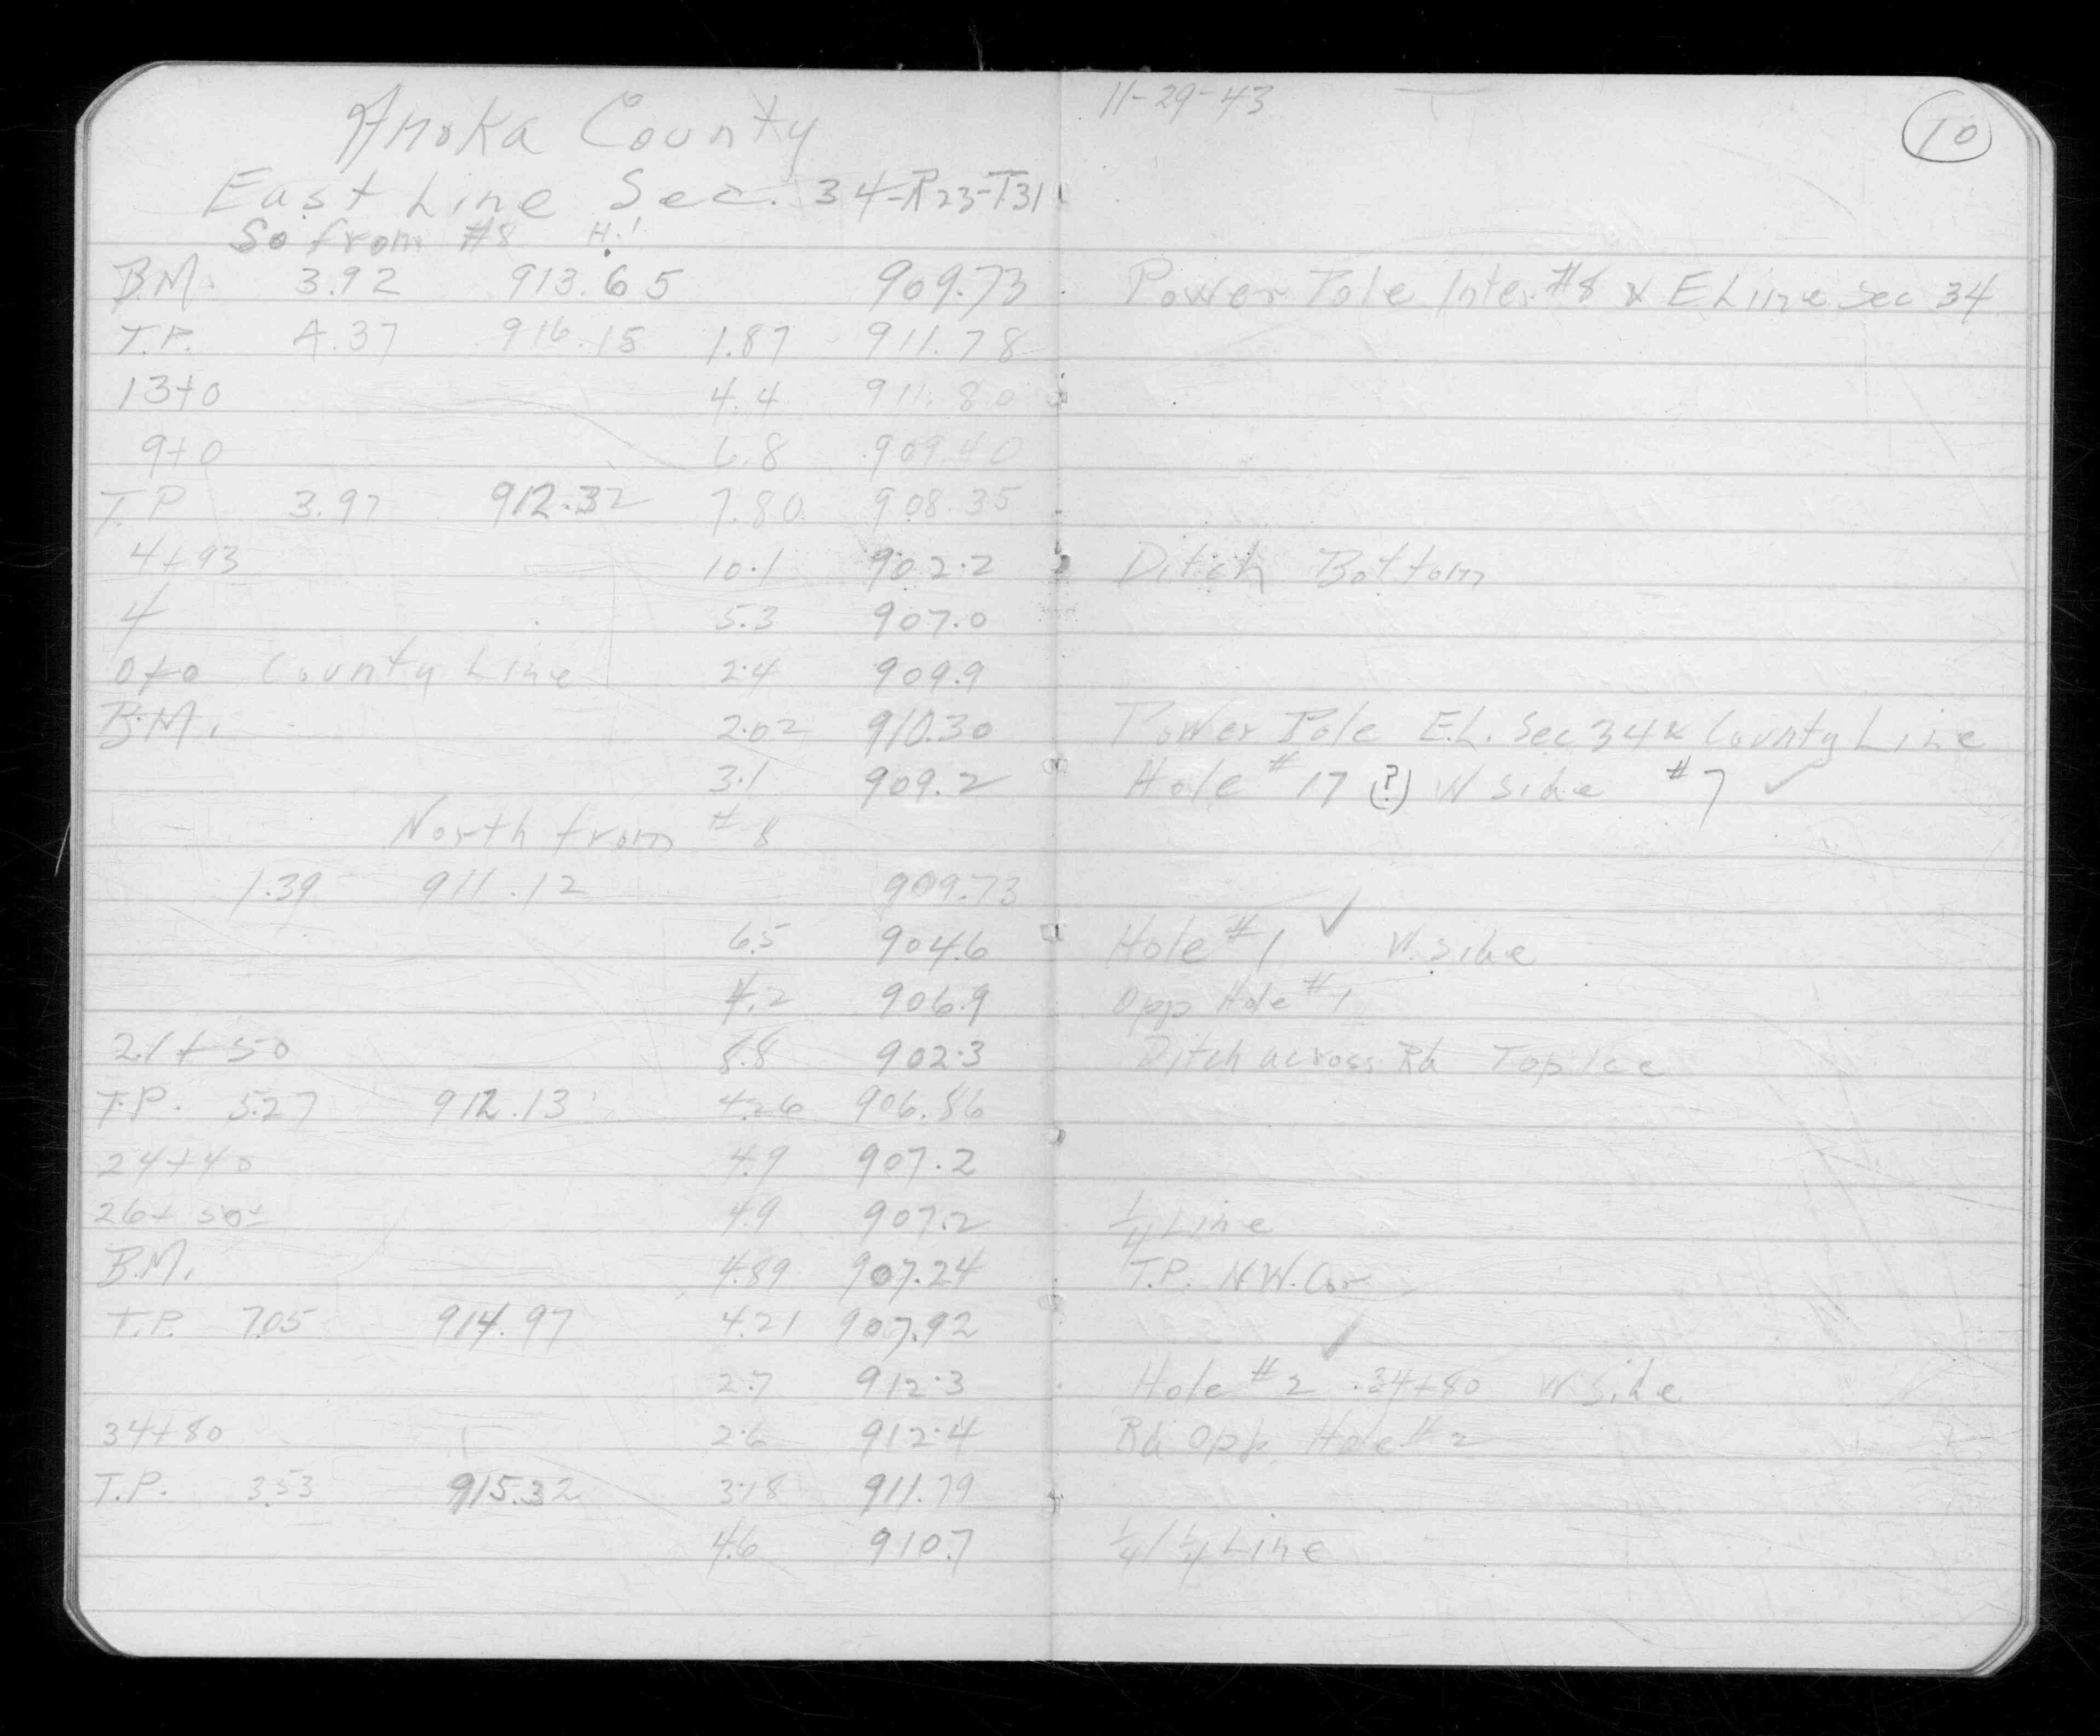 11-29-43
10
Anoka County
East Line Sec. 34-R23-T31
So from #8 H.I.
B.M. 3.92 913.65 909.73 Power Pole Inter. #8 x E Line Sec 34
T.P. 4.37 916.15 1.87 911.78
13+0 4.4 911.80
9+0 6.8 909.40
T.P 3.97 912.32 7.80 908.35
4+93 10.1 902.2 Ditch Bottom
4 5.3 907.0
0+0 County Line 2.4 909.9
B.M. 2.02 910.30 Power Pole E.L. Sec 34 x County Line
3.1 909.2 Hole #17 (?) W Side #7 ✓
North from #8
1.39 911.12 909.73
6.5 904.6 Hole #1 ✓ W. side
4.2 906.9 Opp Hole #1
21+50 8.8 902.3 Ditch across Rd Top Ice
T.P. 5.27 912.13 4.26 906.86
24+40 4.9 907.2
26+50± 4.9 907.2 1/4 Line
B.M. 4.89 907.24 T.P. N.W. Cor
T.P. 7.05 914.97 4.21 907.92
2.7 912.3 Hole #2 ✓ 34+80 W Side
34+80 2.6 912.4 Rd Opp. Hole #2
T.P. 3.53 915.32 3.18 911.79
4.6 910.7 1/4/1/4 Line